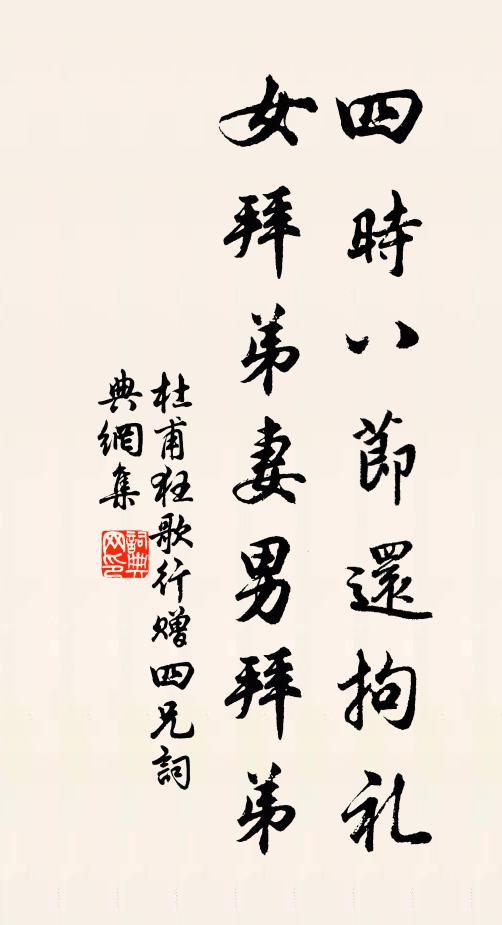 四時八節還拘礼
女拜弟妻男拜弟
杜甫狂歌行贈四兄詞
典網集
詞典网印